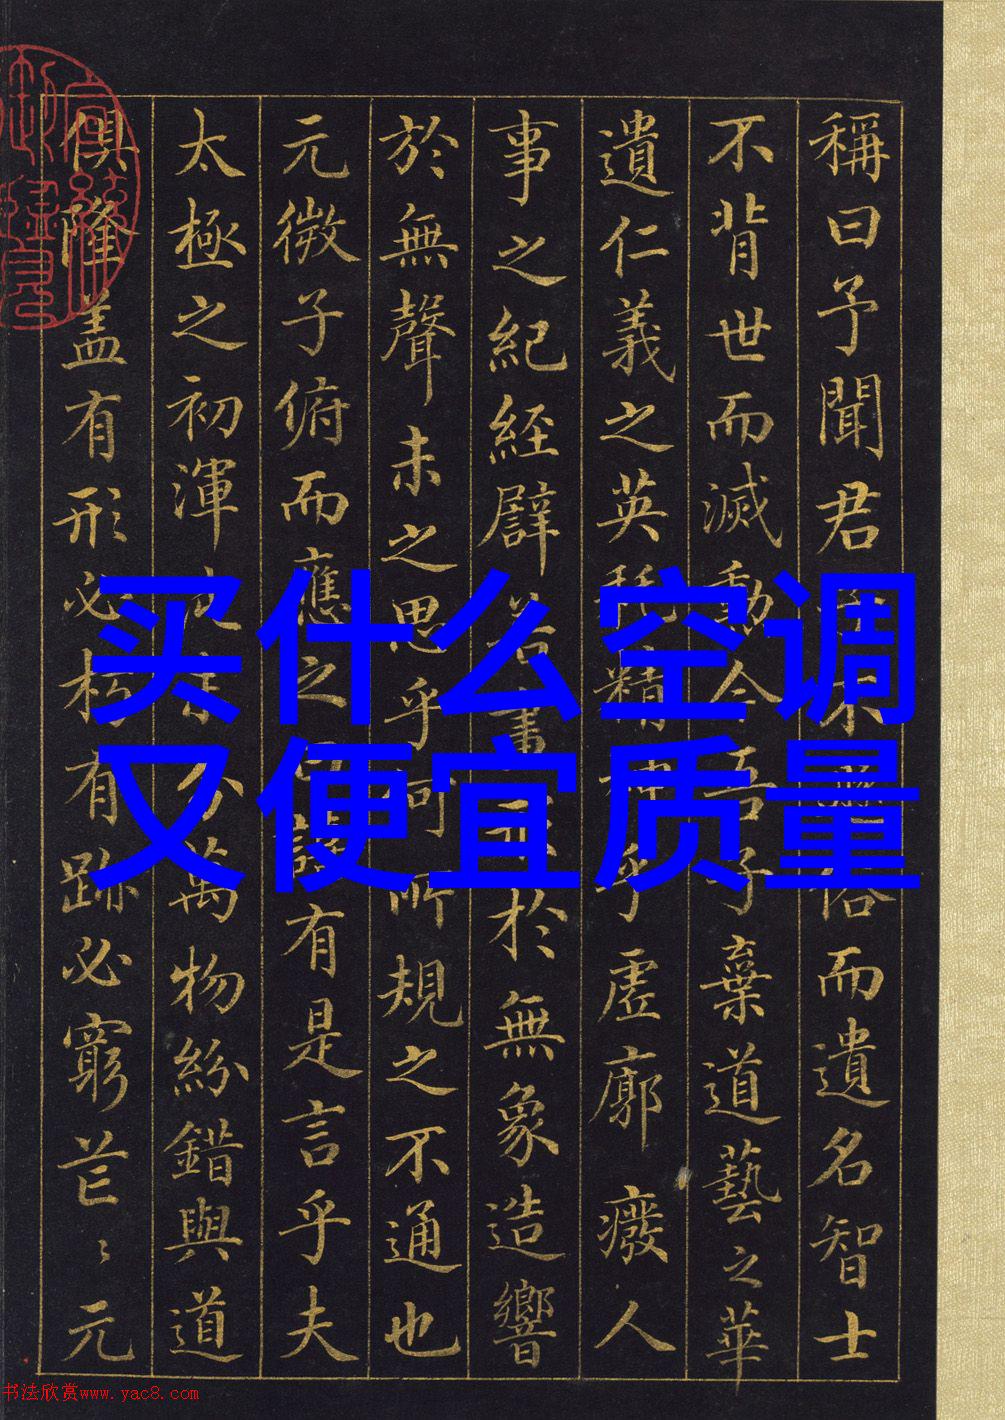 稱曰予聞君
俗而遺名智士
不背世而滅勳今吾子棄道藝之華
遺仁義之英
精神乎虛廓廢人
事之紀經譬
於無象造響
於無聲未之思乎
所規之不通也
元微子俯而應之曰
有是言乎夫
太極之初渾
分萬物紛錯與道
俱隆盖有形必朽有跡必窮芒〻元
买什么空调
又便宜质量
书法欣赏www.yac8.com